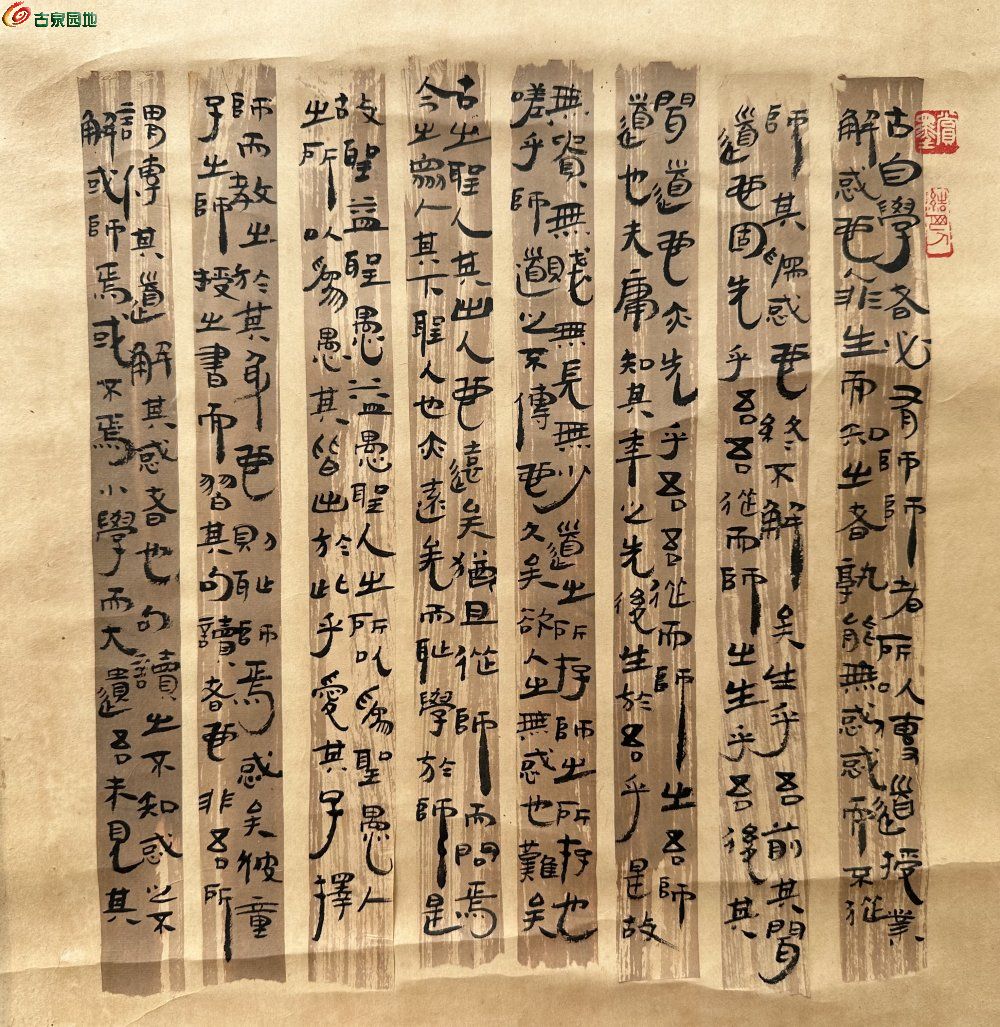 古泉园地
古自學者必有師師者所以傳道授業
解惑也人非生而知之者孰能無惑惑而不從
師其為惑也終不解矣生乎吾前其聞
道也固先乎吾吾從而師之生乎吾後其
聞道也亦先乎吾吾從而師之吾師
道也夫庸知其年之先後生於吾乎是故
無貴無賤無長無少道之所存師之所存也
嗟乎師道之不傳也久矣欲人之無惑也難矣
古之聖人其出人也遠矣猶且從師而問焉
今之眾人其下聖人也亦遠矣而恥學於師是
故聖益聖愚益愚聖人之所以為聖愚人
之所以為愚其皆出於此乎愛其子擇
師而教之於其身也則恥師焉惑矣彼童
子之師授之書而習其句讀者也非吾所
謂傳其道解其惑者也句讀之不知惑之不
解或師焉或不焉小學而大遺吾未見其